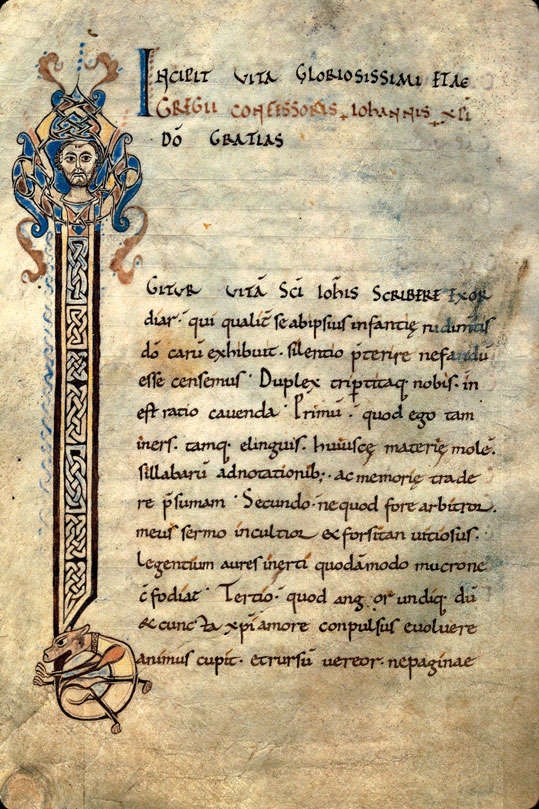 INCIPIT VITA GLORIOSISSIMI ET AE
GREGII CONFESSORIS IOHANNIS XPI
DŌ GRATIAS
GITUR VITĀ SCĪ IOHIS SCRIBERE EXOR
diar · qui qualit̄ se ab ipsius infantię rudim̄tis
dō carū exhibuit · silentio p̄terire nefandū
esse censemus · Duplex tripertitaq nobis · in
est ratio cauenda · Primū · quod ego tam
iners · tamq · elinguis · huiuscę materię molē ·
sillabarū adnotationib; · ac memorię trade
re p̄sumam · Secundo · ne quod fore arbitror ·
meus sermo incultior & forsitan uitiosus ·
legentium aures inerti quodāmodo mucrone
c̄fodiat · Tertio · quod ang or undiq · dū
& cuncta xp̄i amore conpulsus euoluere
animus cupit · et rursū uereor · ne paginae